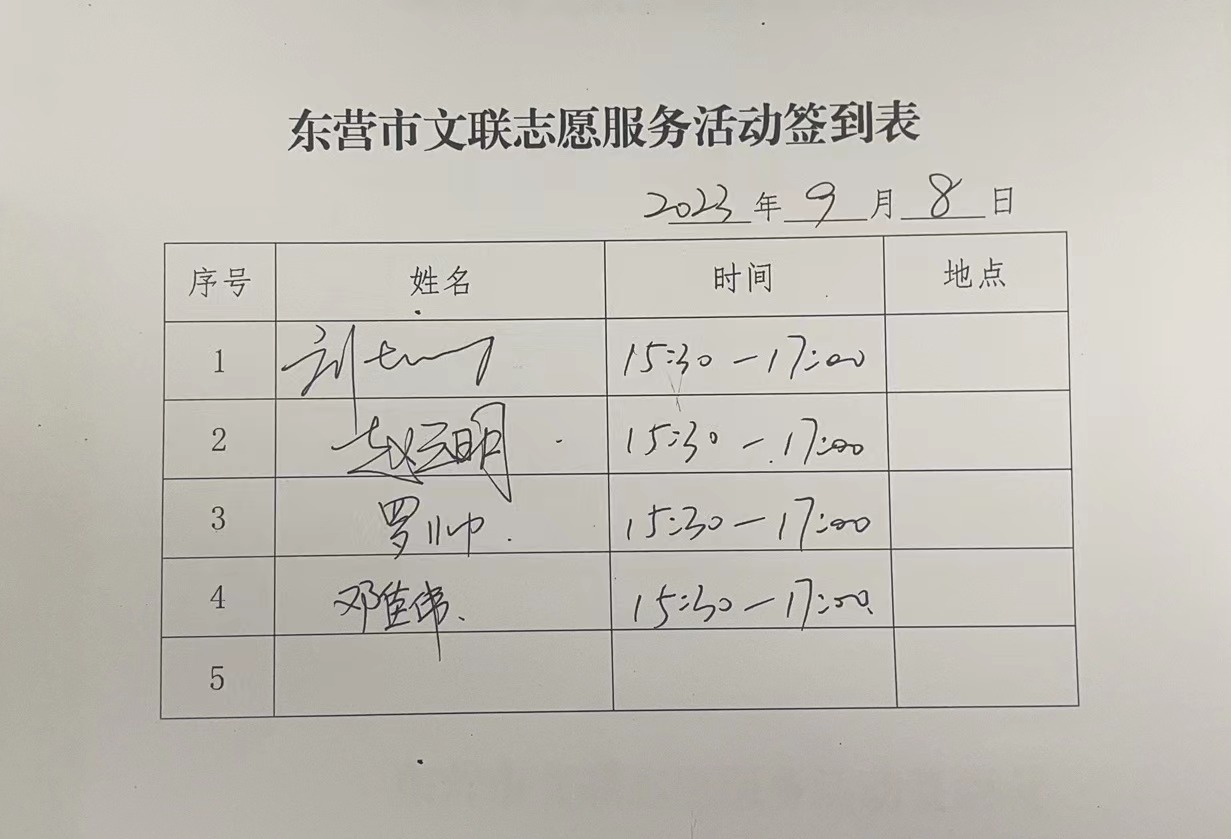 东营市文联志愿服务活动签到表
2023年9月8日
序号 姓名 时间 地点
1 刘 15:30-17:00
2 赵云明 15:30-17:00
3 罗帅. 15:30-17:00
4 邓佳伟、 15:30-17:00、
5